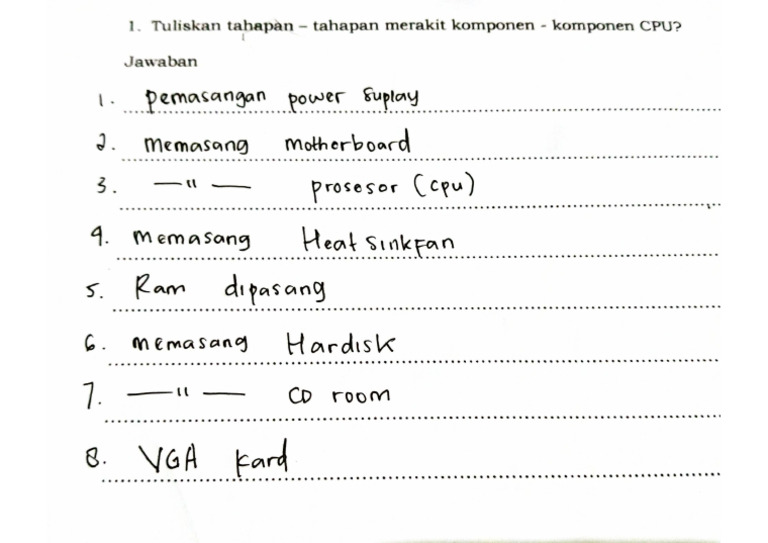 1. Tuliskan tahapan – tahapan merakit komponen - komponen CPU?
Jawaban
1. pemasangan power suplay
2. memasang motherboard
3. —"— prosesor (cpu)
4. memasang Heat sinkfan
5. Ram dipasang
6. memasang Hardisk
7. —"— CD room
8. VGA kard